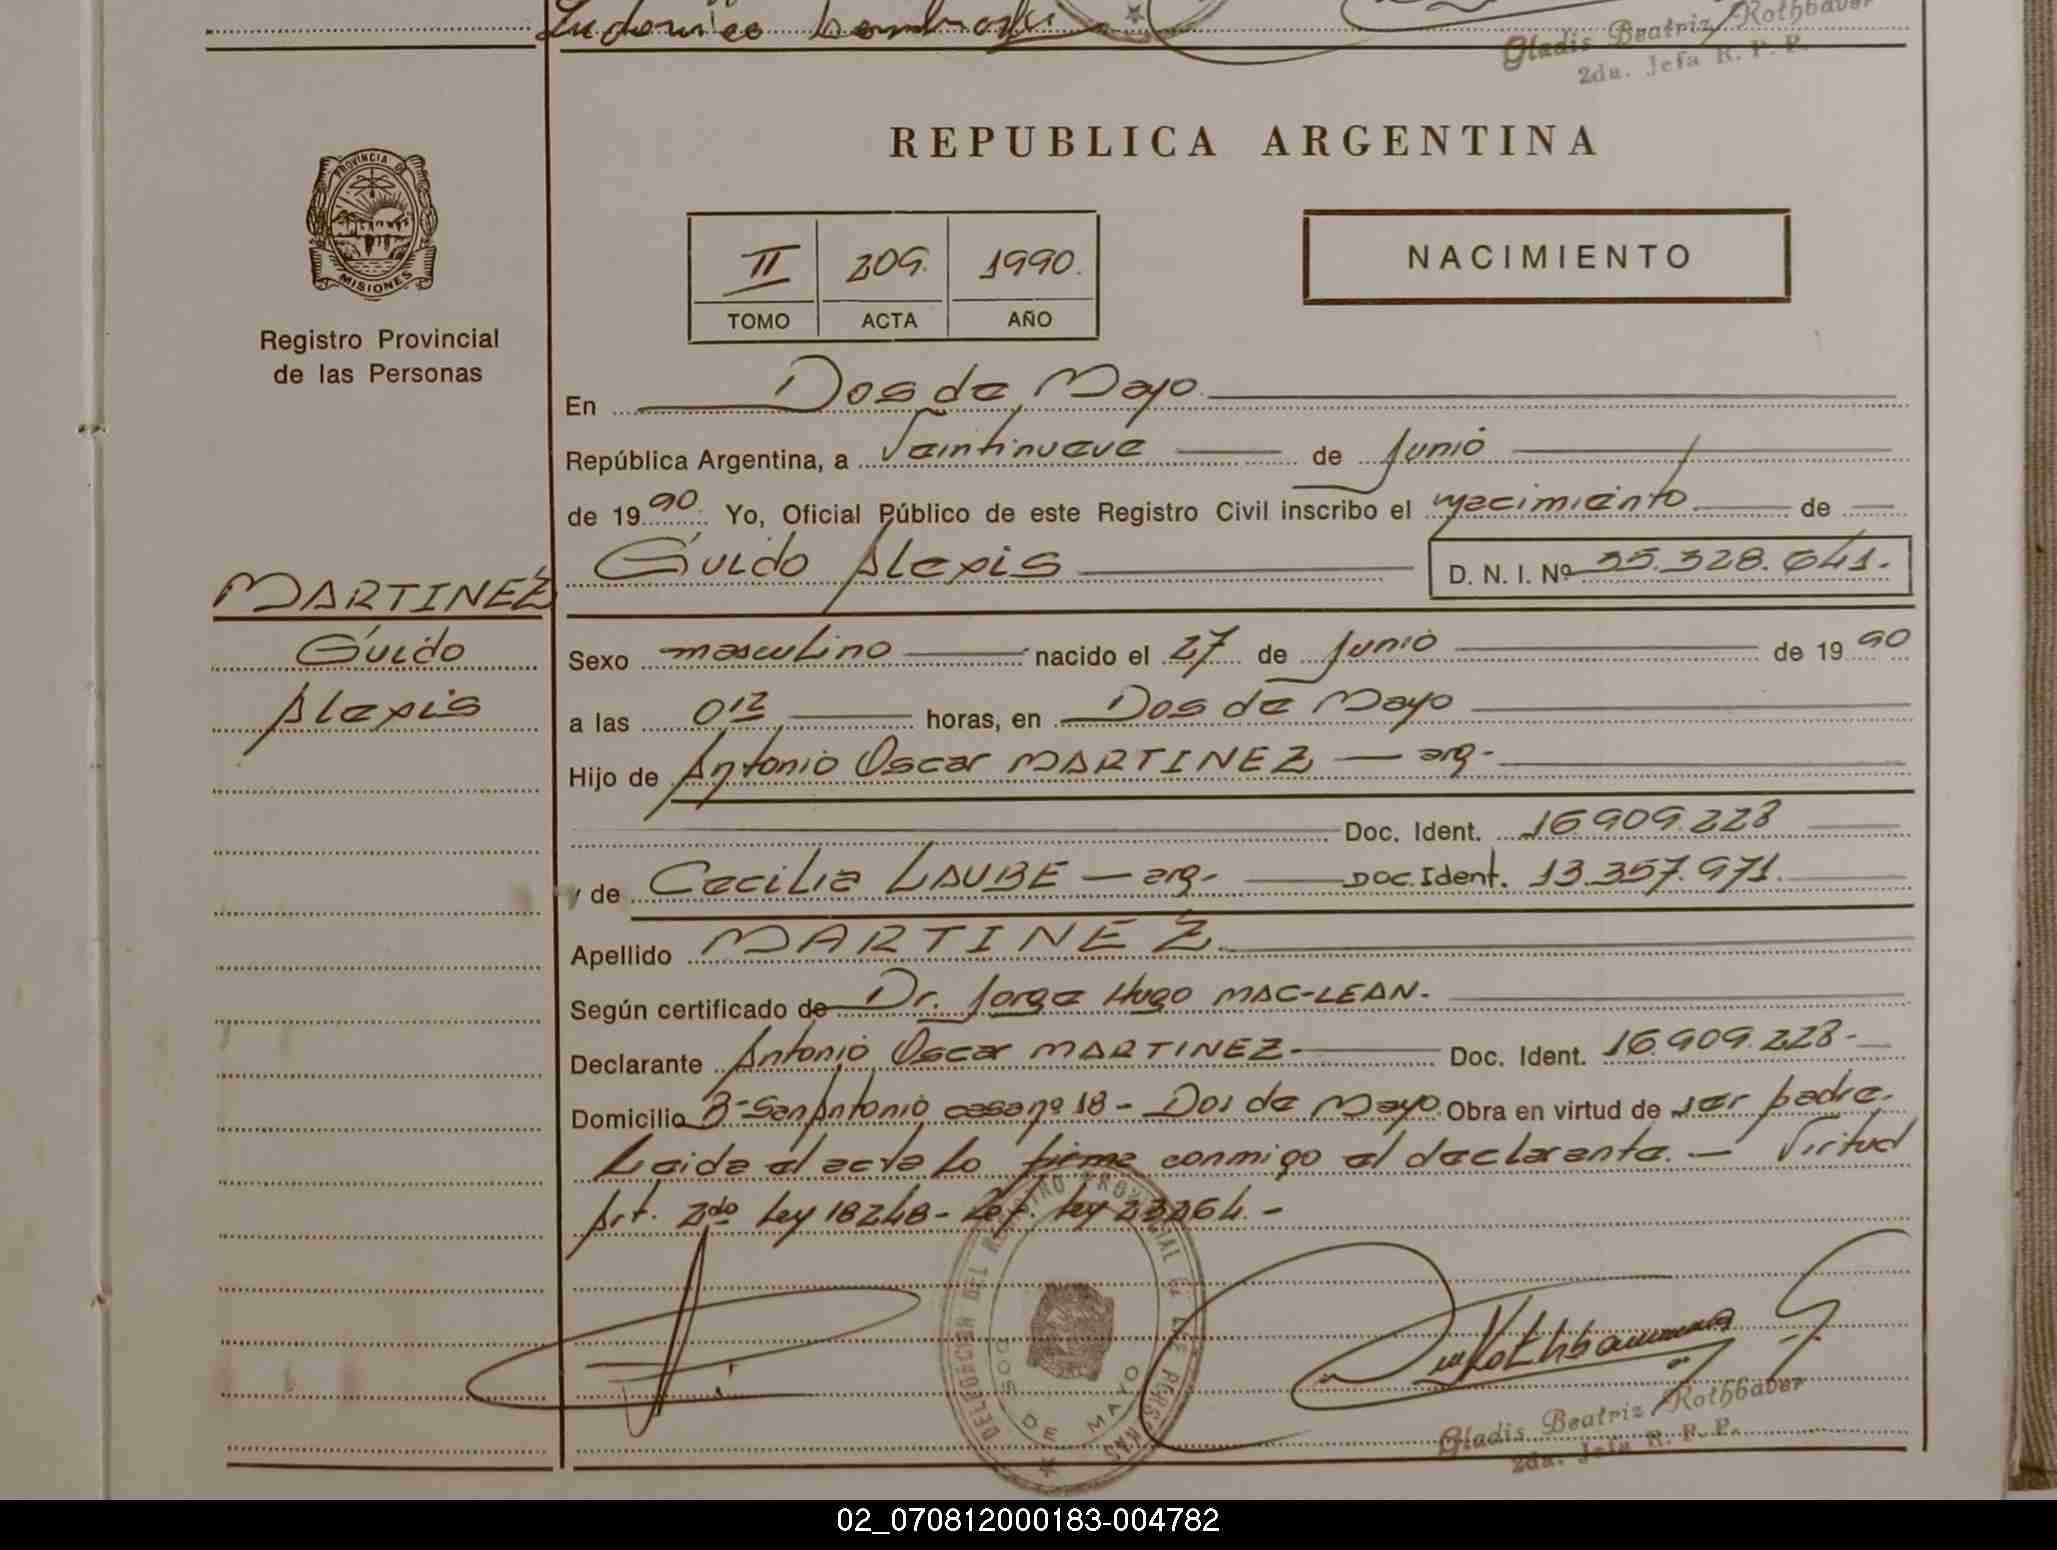 Gladis Beatriz Rothbauer
2da. Jefa R. P. P.
PROVINCIA DE
MISIONES
Registro Provincial
de las Personas
REPUBLICA ARGENTINA
II 209. 1990.
TOMO ACTA AÑO
NACIMIENTO
En Dos de Mayo.
República Argentina, a Veintinueve de Junio
de 1990. Yo, Oficial Público de este Registro Civil inscribo el nacimiento de
Guido Alexis D. N. I. Nº 35.328.641.
MARTINEZ
Guido
Alexis
Sexo masculino nacido el 27 de Junio de 1990
a las 0 12 horas, en Dos de Mayo
Hijo de Antonio Oscar MARTINEZ — arg-
Doc. Ident. 16.909.228
y de Cecilia LAUBE — arg- DOC.Ident. 13.357.971.
Apellido MARTINEZ.
Según certificado de Dr. Jorge Hugo MAC-LEAN.
Declarante Antonio Oscar MARTINEZ. Doc. Ident. 16.909.228-
Domicilio Bº San Antonio casa nº 18 - Dos de Mayo. Obra en virtud de ser padre.
Leida el acta lo firma conmigo el declarante. — Virtud
Art. 2do ley 18248 - Ref. ley 23264. -
DELEGACION DEL REGISTRO PROVINCIAL DE LAS PERSONAS
DOS DE MAYO
Gladis Beatriz Rothbauer
2da. Jefa R. P. P.
02_070812000183-004782